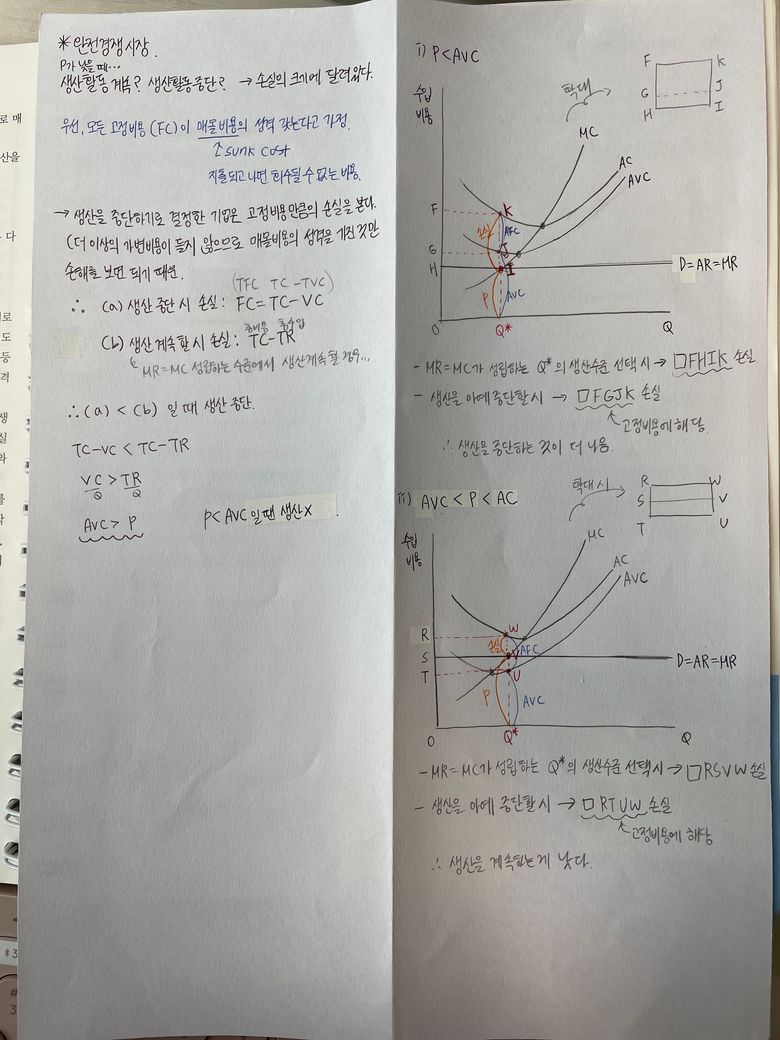 * 완전경쟁시장.
P가 낮을 때...
생산활동 계속? 생산활동 중단? → 손실의 크기에 달려있다.
우선, 모든 고정비용(FC)이 매몰비용의 성격 갖는다고 가정.
↑ sunk cost
지출되고 나면 회수될 수 없는 비용.
→ 생산을 중단하기로 결정한 기업은 고정비용만큼의 손실을 본다.
(더 이상의 가변비용이 들지 않으므로 매몰비용의 성격을 가진 것만
손해를 보면 되기 때문.
(TFC TC - TVC)
∴ (a) 생산 중단 시 손실 : FC = TC - VC
총비용 총수입
(b) 생산 계속할 시 손실 : TC - TR
MR=MC 성립하는 수준에서 생산계속할 경우...
∴ (a) < (b) 일 때 생산 중단.
TC-VC < TC-TR
VC/Q > TR/Q
AVC > P
P < AVC 일 땐 생산 X.
i) P < AVC
확대
F K
G J
H I
수입
비용
MC
AC
AVC
F K
손실 AFC
G J
H I
D=AR=MR
P AVC
O Q* Q
- MR=MC가 성립하는 Q*의 생산수준 선택 시 → □FHIK 손실
- 생산을 아예 중단할 시 → □FGJK 손실
고정비용에 해당.
∴ 생산을 중단하는 것이 더 나음.
ii) AVC < P < AC
확대 시
R W
S V
T U
수입
비용
MC
AC
AVC
R W
손실 AFC
S V
D=AR=MR
T U
P AVC
O Q* Q
- MR=MC가 성립하는 Q*의 생산수준 선택 시 → □RSVW 손실
- 생산을 아예 중단할 시 → □RTUW 손실
고정비용에 해당
∴ 생산을 계속하는게 낫다.